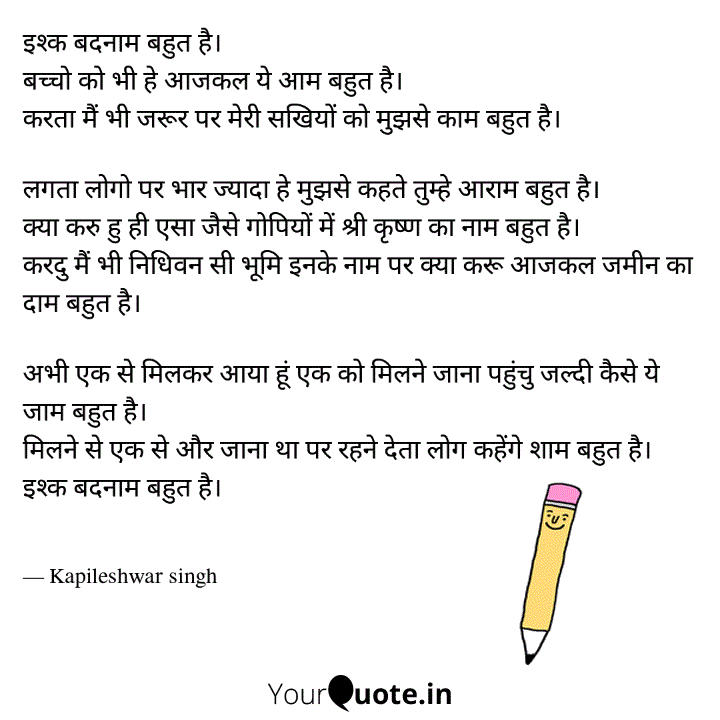 इश्क बदनाम बहुत है।
बच्चो को भी हे आजकल ये आम बहुत है।
करता मैं भी जरूर पर मेरी सखियों को मुझसे काम बहुत है।
लगता लोगो पर भार ज्यादा हे मुझसे कहते तुम्हे आराम बहुत है।
क्या करु हु ही एसा जैसे गोपियों में श्री कृष्ण का नाम बहुत है।
करदु मैं भी निधिवन सी भूमि इनके नाम पर क्या करू आजकल जमीन का
दाम बहुत है।
अभी एक से मिलकर आया हूं एक को मिलने जाना पहुंचु जल्दी कैसे ये
जाम बहुत है।
मिलने से एक से और जाना था पर रहने देता लोग कहेंगे शाम बहुत है।
इश्क बदनाम बहुत है।
— Kapileshwar singh
YourQuote.in